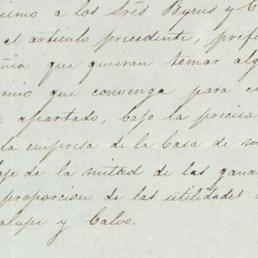 á los tres Byrus y C
el articulo precedente, prefe
que quieran tomar alg
que convenga para c
apartado, bajo la precisa
la empresa de la Casa de mo
de la mitad de las gana
proporcion de las utilidades
alupe y Calvo.